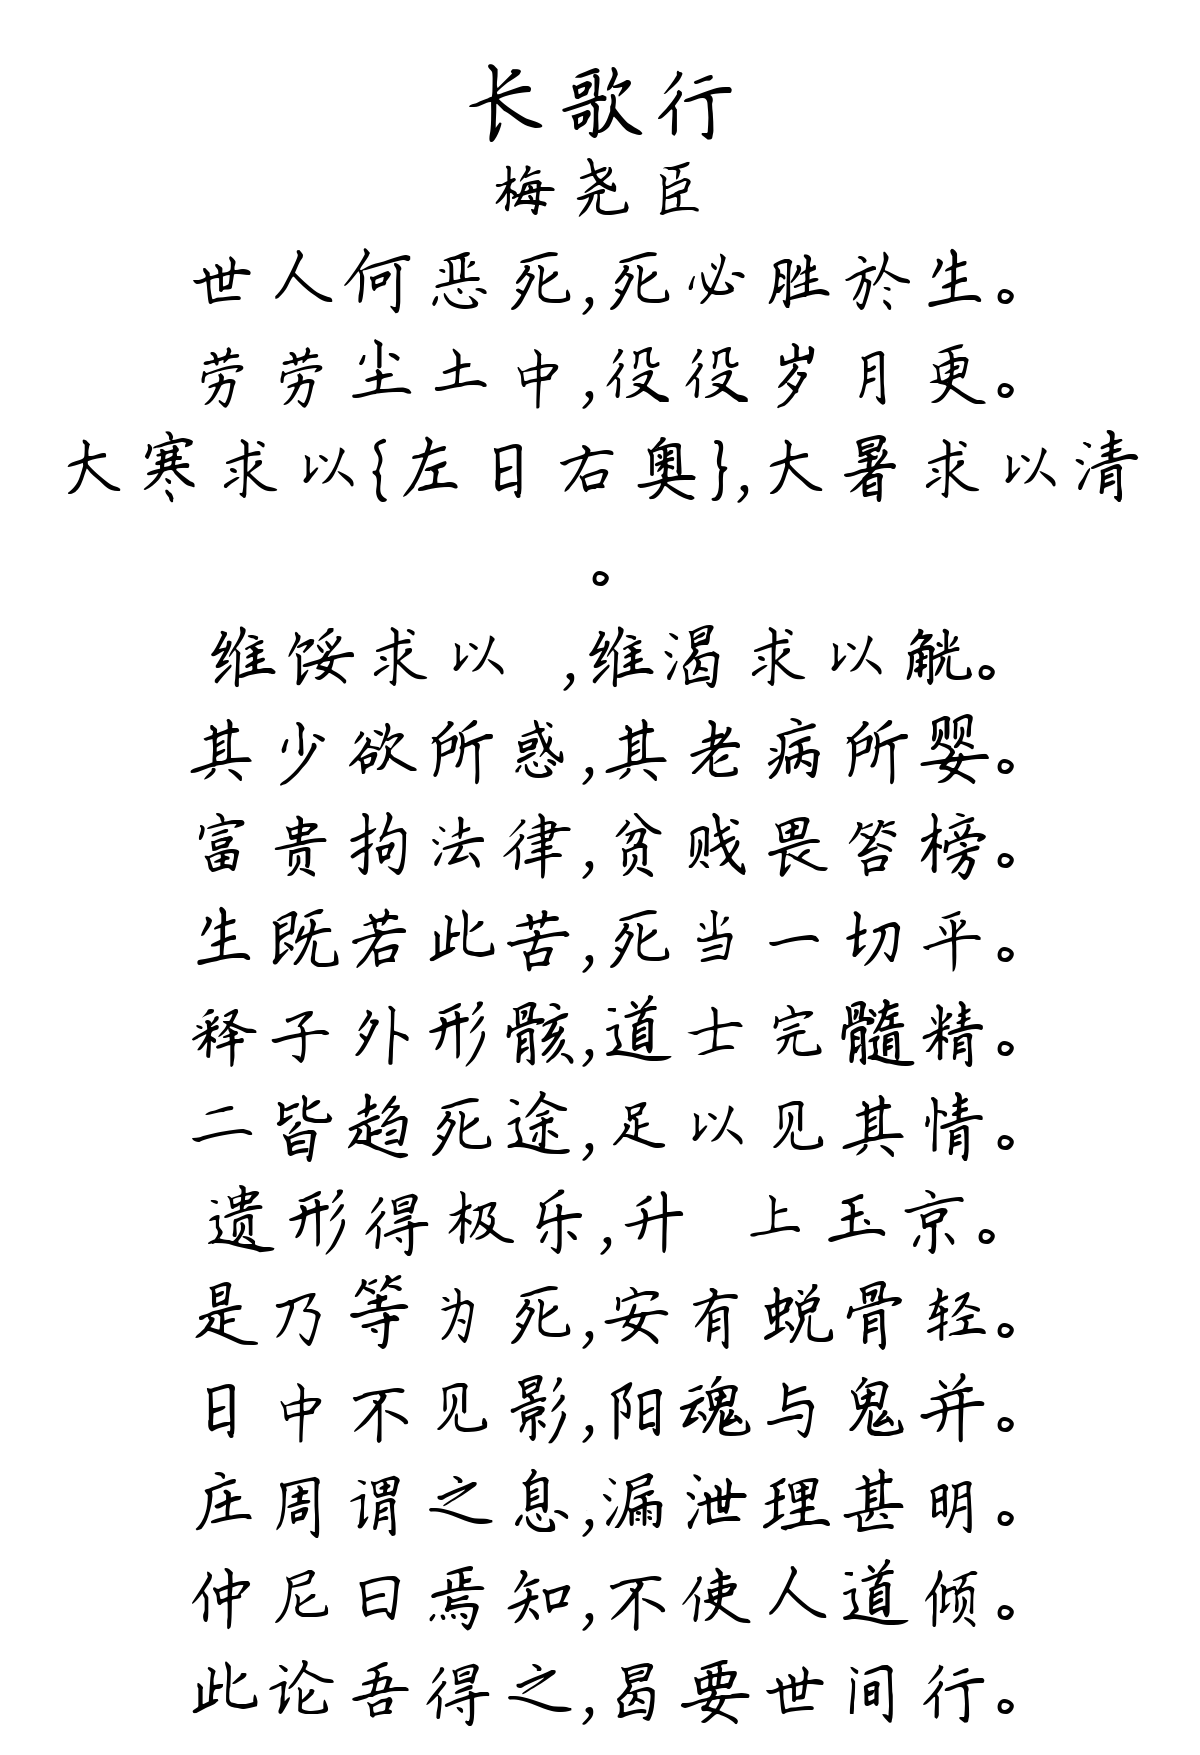 长歌行
梅尧臣
世人何恶死,死必胜於生。
劳劳尘土中,役役岁月更。
大寒求以{左日右奥},大暑求以清
。
维馁求以 ,维渴求以觥。
其少欲所惑,其老病所婴。
富贵拘法律,贫贱畏笞榜。
生既若此苦,死当一切平。
释子外形骸,道士完髓精。
二皆趋死途,足以见其情。
遗形得极乐,升 上玉京。
是乃等为死,安有蜕骨轻。
日中不见影,阳魂与鬼并。
庄周谓之息,漏泄理甚明。
仲尼曰焉知,不使人道倾。
此论吾得之,曷要世间行。